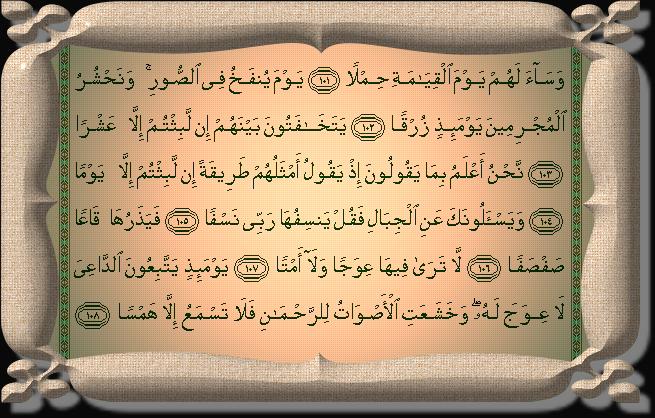 وَسَآءَ لَهُمْ يَوْمَ ٱلْقِيَـٰمَةِ حِمْلًا ١٠١ يَوْمَ يُنفَخُ فِى ٱلصُّورِ ۚ وَنَحْشُرُ
ٱلْمُجْرِمِينَ يَوْمَئِذٍ زُرْقًا ١٠٢ يَتَخَـٰفَتُونَ بَيْنَهُمْ إِن لَّبِثْتُمْ إِلَّا عَشْرًا
١٠٣ نَّحْنُ أَعْلَمُ بِمَا يَقُولُونَ إِذْ يَقُولُ أَمْثَلُهُمْ طَرِيقَةً إِن لَّبِثْتُمْ إِلَّا يَوْمًا
١٠٤ وَيَسْـَٔلُونَكَ عَنِ ٱلْجِبَالِ فَقُلْ يَنسِفُهَا رَبِّى نَسْفًا ١٠٥ فَيَذَرُهَا قَاعًا
صَفْصَفًا ١٠٦ لَّا تَرَىٰ فِيهَا عِوَجًا وَلَآ أَمْتًا ١٠٧ يَوْمَئِذٍ يَتَّبِعُونَ ٱلدَّاعِىَ
لَا عِوَجَ لَهُۥ ۖ وَخَشَعَتِ ٱلْأَصْوَاتُ لِلرَّحْمَـٰنِ فَلَا تَسْمَعُ إِلَّا هَمْسًا ١٠٨